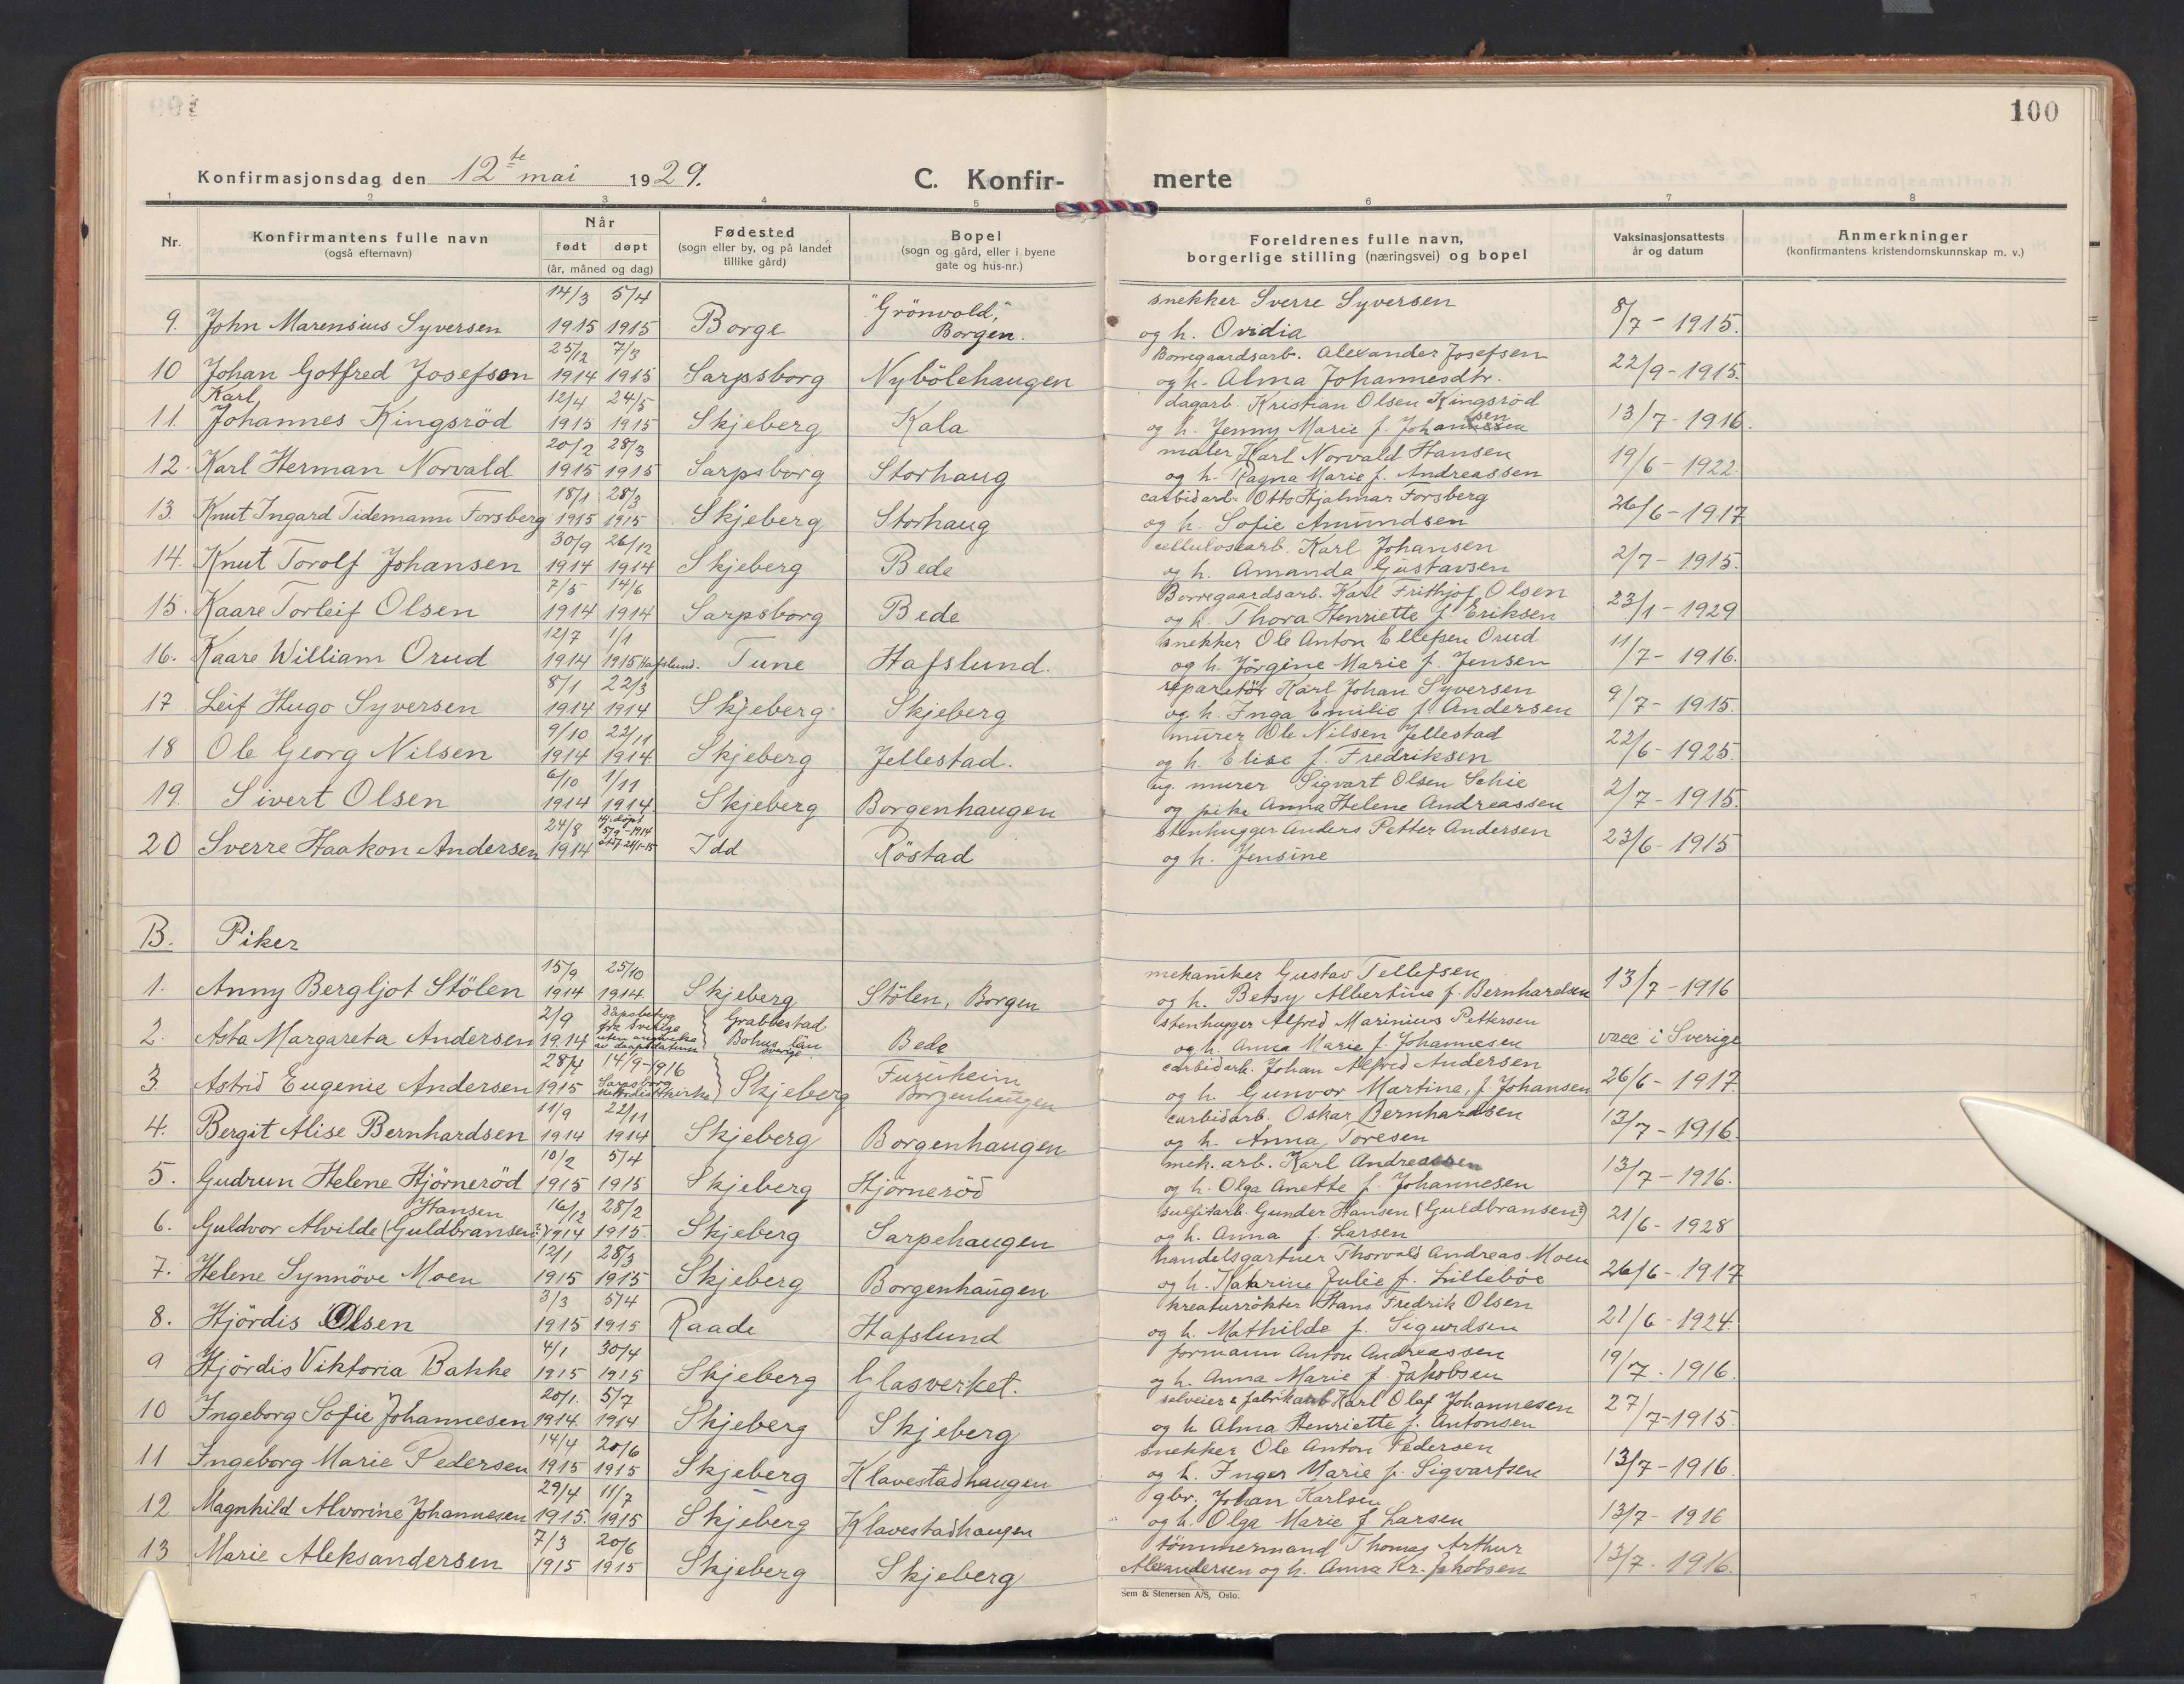 100
Konfirmasjonsdag den 12te mai 1929.
C. Konfir-merte
1 2 3 4 5 6 7 8
Nr.
Konfirmantens fulle navn
(også efternavn)
Når
født døpt
(år, måned og dag)
Fødested
(sogn eller by, og på landet
tillike gård)
Bopel
(sogn og gård, eller i byene
gate og hus-nr.)
Foreldrenes fulle navn,
borgerlige stilling (næringsvei) og bopel
Vaksinasjonsattests
år og datum
Anmerkninger
(konfirmantens kristendomskunnskap m. v.)
14/3 5/4 "Grönvold," snekker Sverre Syversen
9. John Marensius Syversen 1915 1915 Borge Borgen. og h. Ovidia 8/7 - 1915.
25/12 7/3 Borregaardsarb. Alexander Josefsen
10 Johan Gotfred Josefson 1914 1915 Sarpsborg Nybölehaugen og h. Alma Johannesdtr. 22/9 - 1915.
Karl, 12/4 24/5 dagarb. Kristian Olsen Kingsröd
11. Johannes Kingsröd 1915 1915 Skjeberg Kala og h. Jenny Marie f. Johansen 13/7 - 1916.
20/2 28/3 maler Karl Norvald Hansen
12. Karl Herman Norvald 1915 1915 Sarpsborg Storhaug og h. Ragna Marie f. Andreassen 19/6 - 1922.
18/1 28/3 carbidarb. Otto Hjalmar Forsberg
13. Knut Ingard Tidemann Forsberg 1915 1915 Skjeberg Storhaug og h. Sofie Amundsen 26/6 - 1917
30/9 26/12 cellulosearb. Karl Johansen
14. Knut Torolf Johansen 1914 1914 Skjeberg Bede og h. Amanda Gustavsen 2/7 - 1915.
7/5 14/6 Borregaardsarb. Karl Frithjof Olsen
15. Kaare Torleif Olsen 1914 1914 Sarpsborg Bede og h. Thora Henriette f. Eriksen 23/1 - 1929
12/7 1/1 snekker Ole Anton Ellefsen Orud
16. Kaare William Orud 1914 1915 Hafslund. Tune Hafslund. og h. Jörgine Marie f. Jensen 11/7 - 1916.
8/1 22/3 reparatör Karl Johan Syversen
17 Leif Hugo Syversen 1914 1914 Skjeberg Skjeberg og h. Inga Emilie f. Andersen 9/7 - 1915.
9/10 22/11 murer Ole Nilsen Jellestad
18 Ole Georg Nilsen 1914 1914 Skjeberg Jellestad. og h. Elise f. Fredriksen 22/6 - 1925.
6/10 1/11 ug. murer Sigvart Olsen Schie
19. Sivert Olsen 1914 1914 Skjeberg Borgenhaugen og pike Anna Helene Andreassen 2/7 - 1915.
24/8 Hj.döpt 5/9-1914 stenhugger Anders Petter Andersen
20 Sverre Haakon Andersen 1914 Idd Röstad og h. Jensine 23/6 - 1915
B. Piker
15/9 25/10 mekaniker Gustav Tellefsen
1. Anny Bergljot Stölen 1914 1914 Skjeberg Stölen, Borgen og h. Betsy Albertine f. Bernhardsen 13/7 - 1916
2/9 Dåpsbetyg fra Sverige Grabbestad stenhugger Alfred Marinius Pettersen
2. Asta Margareta Andersen 1914 av daapsdatum Bohus län Sverige. Bede og h. Anna Marie f. Johannesen vacc i Sverige
28/4 14/9-1916 Furuheim carbidarb. Johan Alfred Andersen
3. Astrid Eugenie Andersen 1915 Sarpsborg Metodistkirke Skjeberg Borgenhaugen og h. Gunvor Martine, f. Johansen 26/6 - 1917.
11/9 22/11 carbidarb. Oskar Bernhardsen
4. Bergit Alise Bernhardsen 1914 1914 Skjeberg Borgenhaugen og h. Anna Toresen 13/7 - 1916.
10/2 5/4 mek. arb. Karl Andreassen
5. Gudrun Helene Hjörneröd 1915 1915 Skjeberg Hjörneröd og h. Olga Anette f. Johannesen 13/7 - 1916.
Hansen 16/12 28/2 sulfitarb. Gunder Hansen (Guldbransen?)
6. Guldvor Alvilde (Guldbransen?) 1914 1915. Skjeberg Sarpehaugen og h. Anna f. Larsen 21/6 - 1928
12/1 28/3 handelsgartner Thorvald Andreas Moen
7. Helene Synnöve Moen 1915 1915 Skjeberg Borgenhaugen og h. Katrine Julie f. Lilleböe 26/6 - 1917
3/3 5/4 kreaturrökter Hans Fredrik Olsen
8. Hjördis Olsen 1915 1915 Raade Hafslund og h. Mathilde f. Sigurdsen 21/6 - 1924.
4/1 30/4 formann Anton Andreassen
9 Hjördis Viktoria Bakke 1915 1915 Skjeberg Glasverket. og h. Anna Marie f. Jakobsen 19/7 - 1916.
20/1. 5/7 selveier & fabrikarb Karl Olaf Johannesen
10 Ingeborg Sofie Johannesen 1914. 1914 Skjeberg Skjeberg og h. Alma Henriette f. Antonsen 27/7-1915.
14/4 20/6 snekker Ole Anton Pedersen
11 Ingeborg Marie Pedersen 1915 1915 Skjeberg Klavestadhaugen og h. Inger Marie f. Sigvartsen 13/7 - 1916.
29/4 11/7 gbr. Johan Karlsen
12 Magnhild Alvorine Johannesen 1915. 1915 Skjeberg Klavestadhaugen og h. Olga Marie f. Larsen 13/7 - 1916
7/3 20/6 tömmermand Thomas Arthur
13 Marie Aleksandersen 1915 1915 Skjeberg Skjeberg Alexandersen og h. Anna Kr. Jakobsen 13/7 - 1916.
Sem & Stenersen A/S, Oslo.